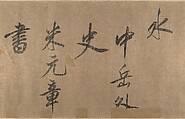 水
中岳外
史
米元章
書